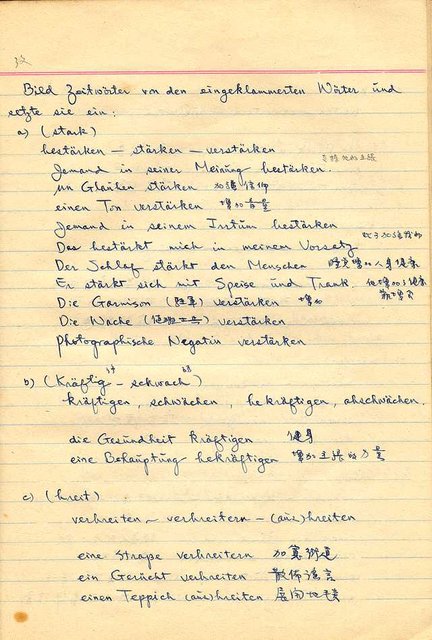 Bild Zeitwörter von den eingeklammerten Wörter und
setzte sie ein:
a) (stark)
bestärken – stärken – verstärken
Jemand in seiner Meinung bestärken.
im Glauben stärken 加強信仰
einen Ton verstärken 增加音量
Jemand in seinem Irrtum bestärken
Das bestärkt mich in meinem Vorsatz
Der Schlaf stärkt den Menschen
Er stärkt sich mit Speise und Trank.
Die Garnison (駐軍) verstärken 增加
Die Wache verstärken
Photographische Negativ verstärken
b) (kräftig – schwach)
kräftigen, schwächen, bekräftigen, abschwächen.
die Gesundheit kräftigen 健身
eine Behauptung bekräftigen 增加主張的力量
c) (breit)
verbreiten – verbreitern – (aus)breiten
eine Straße verbreitern 加寬街道
ein Gerücht verbreiten 散佈謠言
einen Teppich (aus)breiten 展開地毯